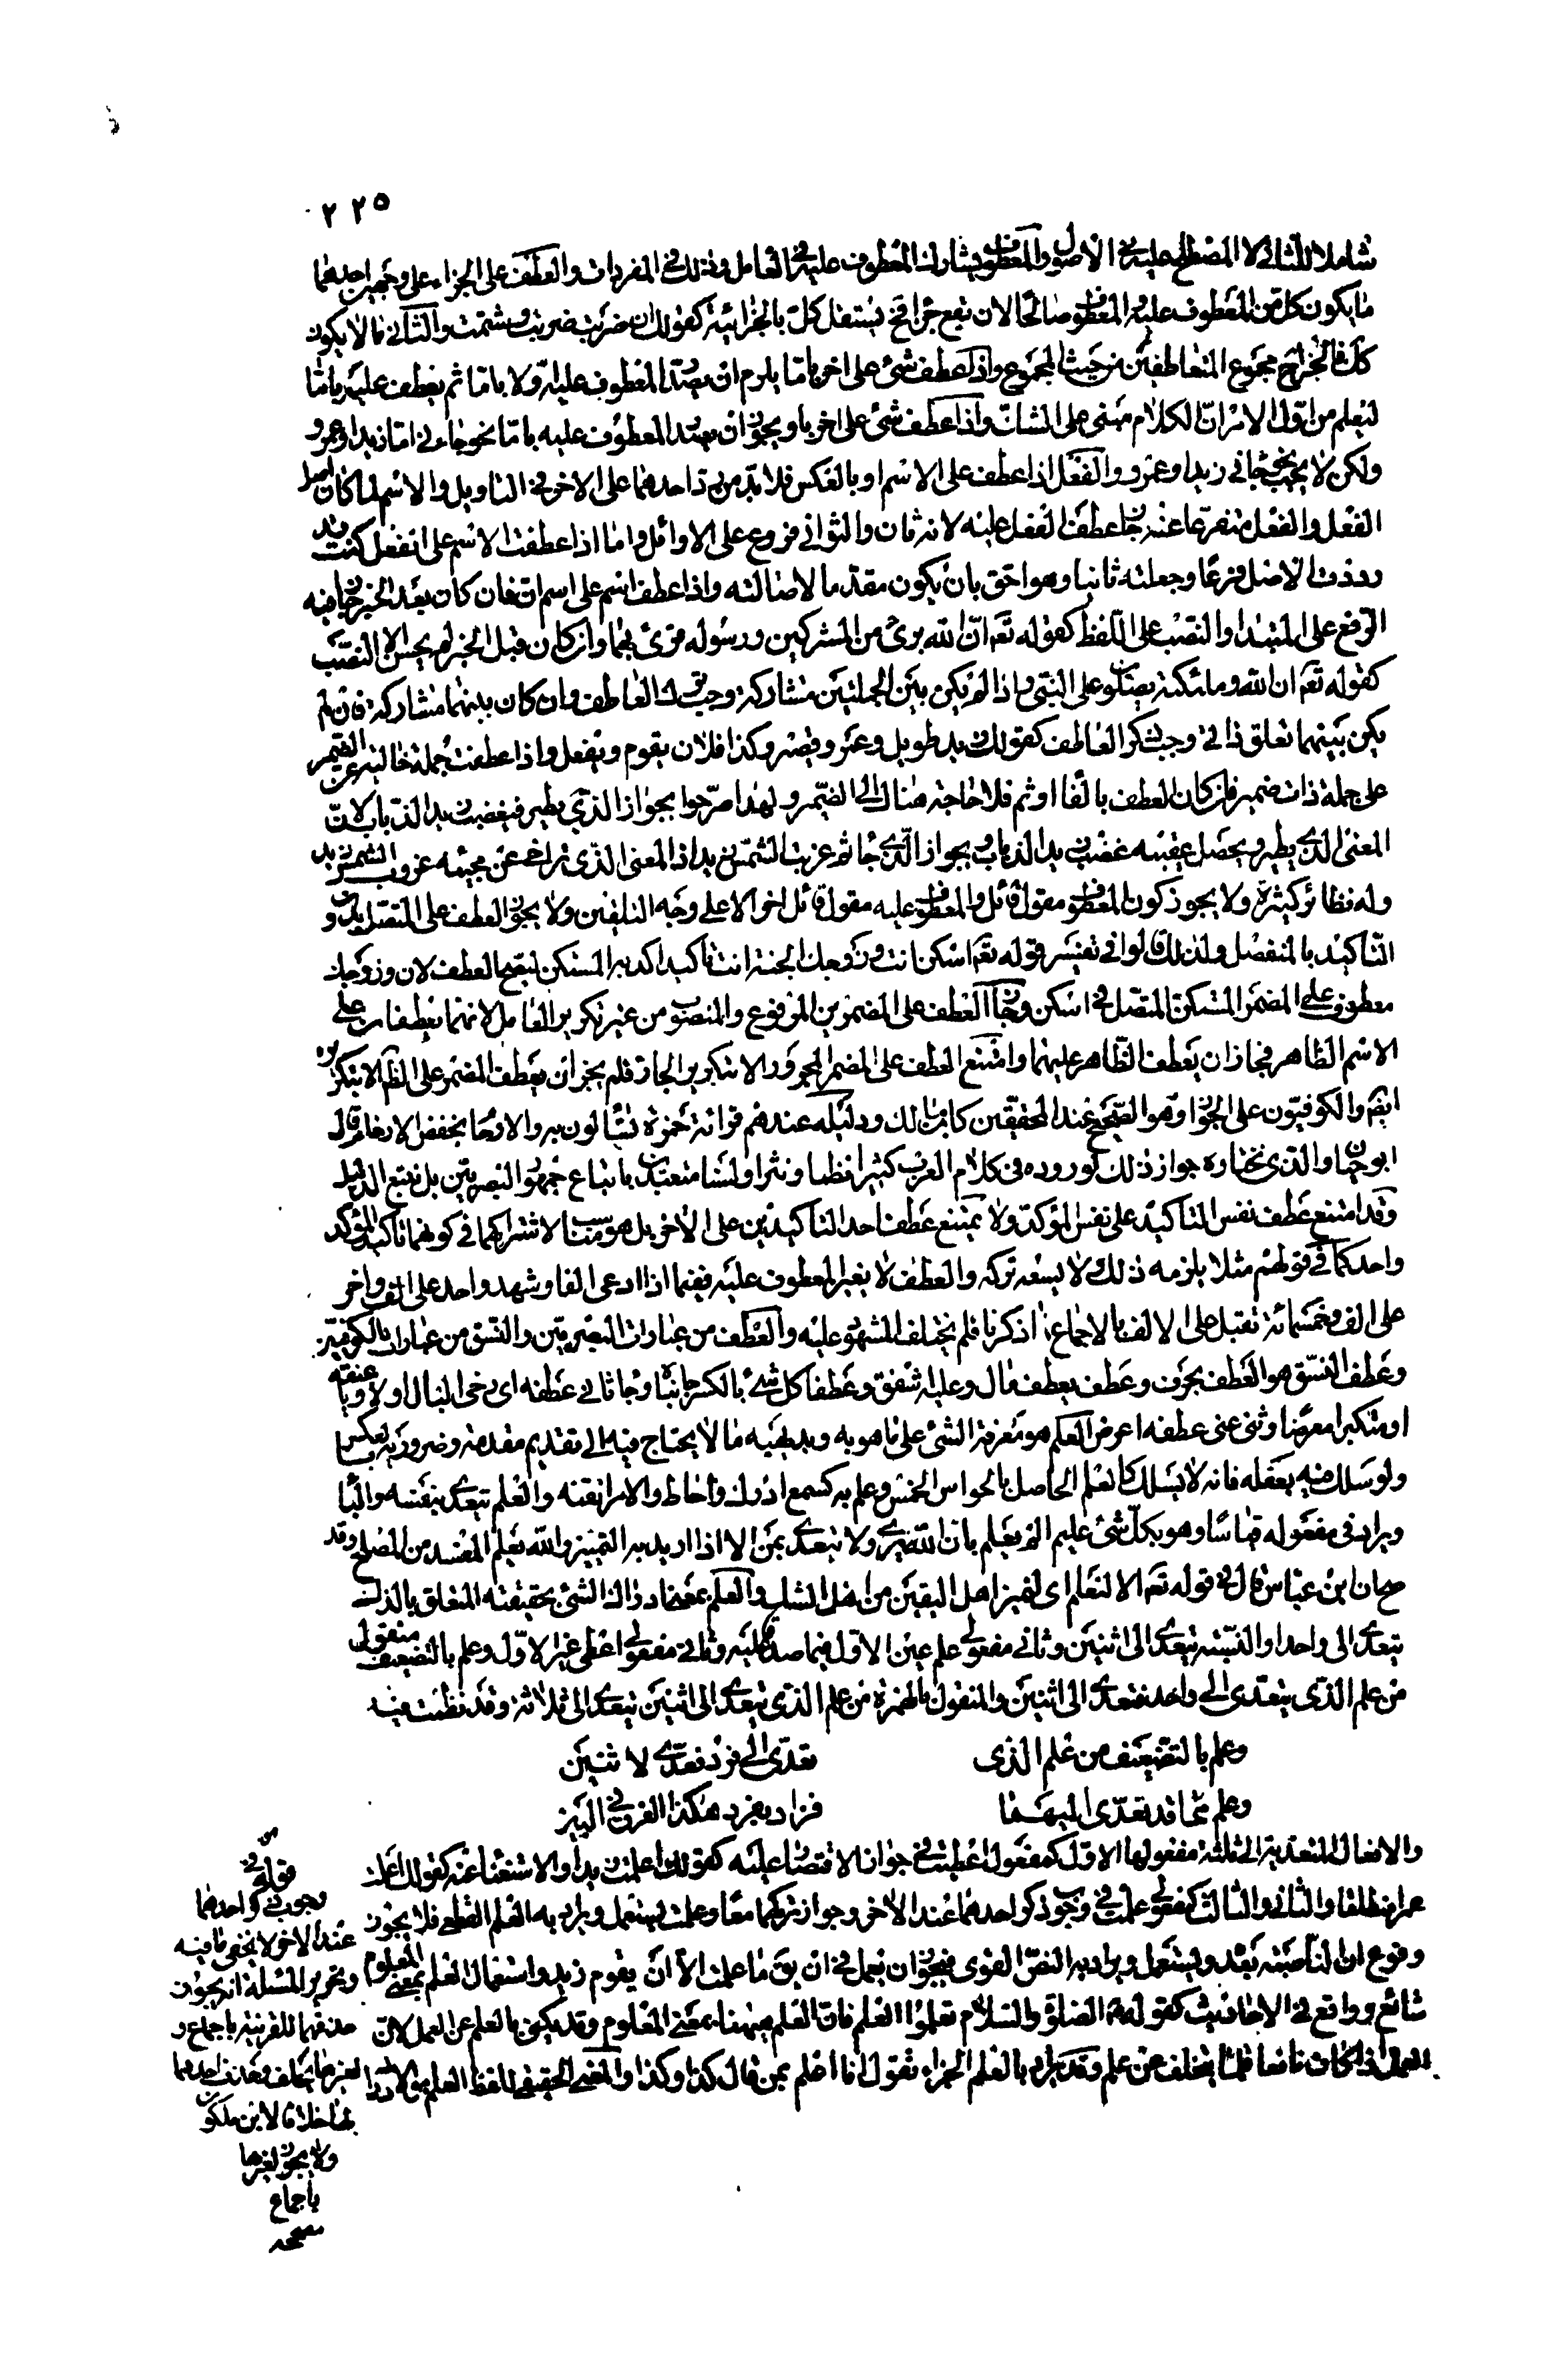 ٢٢٥
شاملا للثانى لا المصطلح عليه فى الاصول والمعطوف يشارك المعطوف عليه فى العامل وذلك فى المفردات والعطف على الجزاء على وجهين احدهما
ما يكون كل من المعطوف عليه والمعطوف صالحا لان يقع جزا فح يستقل كل بالجزائية كقولك ان ضربت ضربت وشتمت والثانى ما لا يكون
كك فالجزاء ح مجموع المتعاطفين من حيث المجموع واذا عطف شئ على اخر باما يلزم ان يصدر المعطوف عليه اولا باما ثم يعطف عليه باما
ليعلم من اول الامر ان الكلام مبنى على الشك واذا عطف شئ على اخر باو يجوز ان يصدر المعطوف عليه باما نحو جاءنى اما زيد او عمرو
ولكن لا يجب نحو جاءنى زيد او عمرو والفعل اذا عطف على الاسم او بالعكس فلا بد من رد احدهما على الاخر فى التاويل والاسم لما كان اصل
الفعل والفعل متفرعا عنه جاز عطف الفعل عليه لانه ثان والثوانى فروع على الاوائل واما اذا عطفت الاسم على الفعل كنت قد
رددت الاصل فرعا وجعلته ثانيا وهو احق بان يكون مقدما لاصالته واذا عطف اسم على اسم ان فان كان بعد الخبر جاز فيه
الرفع على المبتدا والنصب على اللفظ كقوله تعم ان الله برئ من المشركين ورسوله قرئ بهما وان كان قبل الخبر لم يحسن الا النصب
كقوله تعم ان الله وملئكته يصلون على النبى واذا لم يكن بين الجملتين مشاركة وجب ترك العاطف وان كان بينهما مشاركة فان لم
يكن بينهما تعلق ذاتى وجب ذكر العاطف كقولك زيد طويل وعمرو قصير وكذا فلان يقوم ويفعل واذا عطفت جملة خالية عن الضمير
على جملة ذات ضمير فان كان العطف بالفا او ثم فلا حاجة هناك الى الضمير ولهذا صرحوا بجواز الذى يطير فيغضب زيد الذباب لان
المعنى الذى يطير ويحصل عقيبه غضب زيد الذباب وبجواز الذى جاء ثم غربت الشمس زيد اذ المعنى الذى تراخى عن مجيئه غروب الشمس زيد
وله نظائر كثيرة ولا يجوز كون المعطوف مقول قائل والمعطوف عليه مقول قائل اخر الا على وجه التلقين ولا يجوز العطف على المتصل بدون
التاكيد بالمنفصل ولذلك قالوا فى تفسير قوله تعم اسكن انت وزوجك الجنة انت تاكيد اكد به المستكن ليصح العطف لان وزوجك
معطوف على المضمر المستكن المتصل فى اسكن وجاز العطف على المضمرين المرفوع والمنصوب من غير تكرير العامل لانهما يعطفان على
الاسم الظاهر فجاز ان يعطف الظاهر عليهما وامتنع العطف على المضمر المجرور الا بتكرير الجار فلم يجز ان يعطف المضمر على الظاهر الا بتكرره
ايضم والكوفيون على الجواز وهو الصحيح عند المحققين كابن مالك ودليله عندهم قراءة حمزة تساءلون به والارحام بخفض الارحام قال
ابو حيان والذى نختاره جواز ذلك لوروده فى كلام العرب كثيرا نظما ونثرا ولسنا متعبدين باتباع جمهور البصريين بل نتبع الدليل
وقد امتنع عطف نفس التاكيد على نفس المؤكد ولا يمتنع عطف احد التاكيدين على الاخر بل هو مناسب لاشتراكهما فى كونهما تاكيد المؤكد
واحد كما فى قولهم مثلا يلزمه ذلك ولا يسعه تركه والعطف لا يغير المعطوف عليه ففيما اذا ادعى الفا وشهد واحد على الف واخر
على الف وخمسمائة تقبل على الالف بالاجماع اذ كرنا فلم يختلف المشهود عليه والعطف من عبارات البصريين والنسق من عبارات الكوفيين
وعطف النسق هو العطف بحرف وعطف يعطف مال وعليه اشفق وعطفا كل شئ بالكسر جانباه وجاء ثانى عطفه اى رخى البال او لاويا عنقه
او متكبرا معرضا وثنى عنى عطفه اعرض العلم هو معرفة الشئ على ما هو به وبديهيه ما لا يحتاج فيه الى تقديم مقدمة وضروريه بعكس
ولو سلك فيه بعقله فانه لا يسلك كالعلم الحاصل بالحواس الخمس وعلم به كسمع ادرك واحاط والامر اتقنه والعلم يتعدى بنفسه وبالبا
ويراد فى مفعوله قياسا وهو بكل شئ عليم الم يعلم بان الله يرى ولا يتعدى بمن الا اذا اريد به التمييز والله يعلم المفسد من المصلح وقد
صح ان ابن عباس قال فى قوله تعم الا لنعلم اى لنميز اهل اليقين من اهل الشك والعلم بمعنى ادراك الشئ بحقيقته المتعلق بالذات
يتعدى الى واحد او النسبة يتعدى الى اثنين وثانى مفعولى علم عين الاول فيما صدقا عليه وثانى مفعولى اعطى غير الاول وعلم بالتضعيف منقول
من علم الذى يتعدى الى واحد فتعدى الى اثنين والمنقول بالهمزة من علم الذى يتعدى الى اثنين يتعدى الى ثلاثة وقد نظمت فيه
وعلم بالتضعيف من علم الذى تعدى الى فرد فعدى لاثنين
وعلم مما قد تعدى اليهما فزاد بفرد هكذا الفرق فى البين
والافعال المتعدية الى ثلثة مفعولها الاول كمفعول اعطيت فى جواز الاقتصار عليه كقولك اعلمت زيدا والاستغناء عنه كقولك اعلمت
عمرا منطلقا والثانى والثالث كمفعولى علمت فى وجوب ذكر احدهما عند الاخر وجواز تركهما معا وعلمت يستعمل ويراد به العلم القطعى فلا يجوز
وقوع ان الناصبة بعده ويستعمل ويراد به الظن القوى فيجوز ان يعمل فى ان يق ما علمت الا ان يقوم زيد واستعمال العلم بمعنى المعلوم
شائع وواقع فى الاحاديث كقوله عليه الصلوة والسلام تعلموا العلم فان العلم ههنا بمعنى المعلوم وقد يكنى بالعلم عن العمل لان
العمل اذا كان نافعا قلما يتخلف عن علم وقد يراد بالعلم الجزاء تقول انا اعلم بمن قال كذا وكذا والمعنى الحقيقى للفظ العلم هو الادراك
قوله فى
وجوب ذكر احدهما
عند الاخر لا يخفى ما فيه
وتحرير المسئلة انه يجوز
حذفهما للقرينة باجماع و
لغيرها بخلف وحذف احدهما
لها خلافا لابن ملكون
ولا يجوز لغيرها
باجماع
مصححه